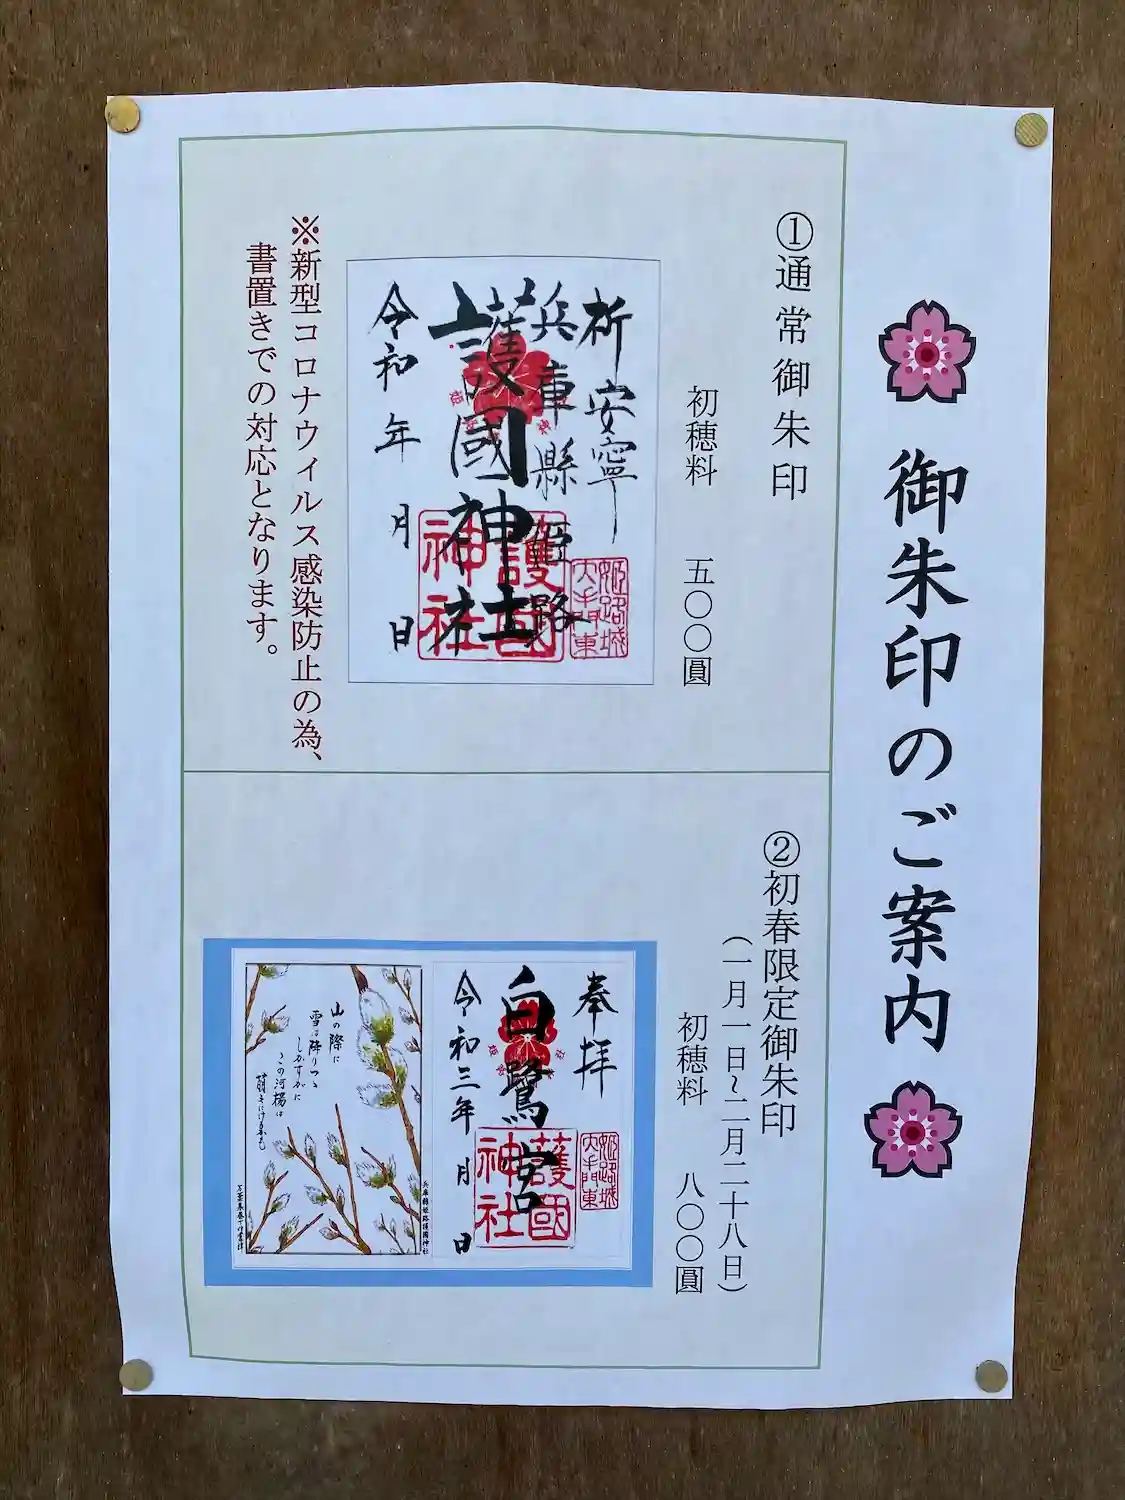 御朱印のご案内
①通常御朱印
初穂料 五〇〇圓
祈安寧
兵庫縣姫路
護國神社
令和 年 月 日
護國神社
姫路城
大手門東
※新型コロナウィルス感染防止の為、
書置きでの対応となります。
②初春限定御朱印
(一月一日~二月二十八日)
初穂料 八〇〇圓
奉拝
白鷺宮
令和三年 月 日
護國神社
姫路城
大手門東
山の際に
雪は降りつゝ
しかすがに
この河楊は
萌えにけるかも
兵庫縣姫路護國神社